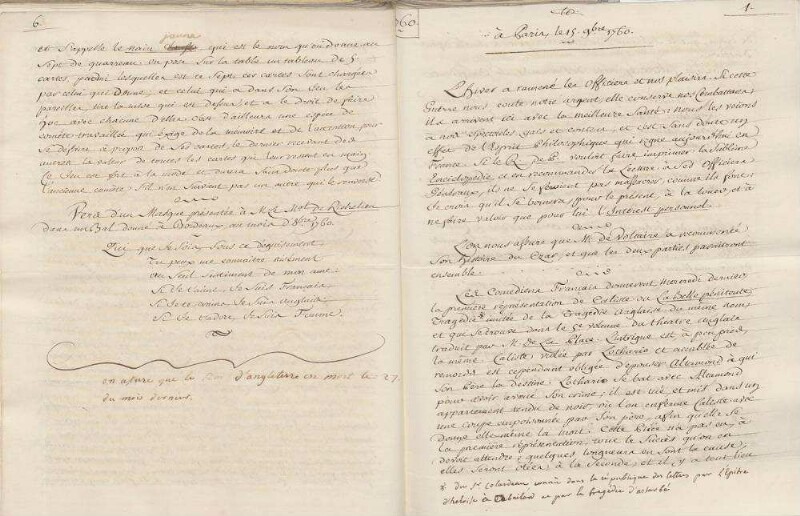 6.
jaune
et s'appelle le nain qui est le nom qu'on donne au
Sept de quarreau, on pose sur la table un tableau de 5
cartes, parmi lesquelles est ce Sept; ces cartes sont chargées
par celui qui Donne, et celui qui a dans son jeu les
pareilles, tire la mise qui est dessus, et a le Droit de faire
que avec chacune d'elles. C'est d'ailleurs une espece de
qui exige de la memoire et de l'attention pour
se defaire à propos de ses cartes, le dernier restant des
autres la valeur de toutes les cartes qui leur restent en main.
Le Jeu est fort à la mode et durera Sans doute plus que
l'ancienne comète, s'il n'en survient pas un autre qui le remplace
Vers d'un Masque presentés à M. le Mal. de Richelieu
dans un Bal donné à Bordeaux au mois d'8bre 1760.
Ici que je sois sous ce déguisement
Tu peux me connoitre aisement
Au Seul sentiment de mon ame
Si je t'aime, je suis Français
Si je te crains, je suis Anglais
Si je t'adore, je suis Femme.
on assure que le Roi d'angleterre est mort le 27.
du mois dernier.
1760.
1.
à Paris, le 15 9bre 1760.
L'hiver a ramené les Officiers et nos plaisirs. Si cette
Guerre nous coute notre argent, elle conserve nos Combattans;
ils arrivent ici avec la meilleure Santé; nous les voyons
à nos spectacles gais et contens, et c'est Sans doute un
effet de l'Esprit Philosophique qui regne aujourd'hui en
France. Si le R. de P. vouloit faire imprimer la Sublime
Enciclopedie, et en recommander la Lecture à Ses Officiers
ils ne se feroient pas massacrer comme ils font;
je crois qu'il se bornera pour le présent à la lire, et à
ne faire valoir que pour lui l'Interest personnel.
L'on nous assure que M. de Voltaire a recommencé
Son histoire du Czar, et que les deux parties paroitront
ensemble.
Les Comediens Français donnerent mercredi dernier
la première représentation de Caliste ou La belle pénitente
Tragedie* imitée de la Tragedie Anglaise du même nom,
et qui se trouve dans le 5e volume du théatre Anglais
traduit par M. de La Place. L'intrigue est à peu près
la même. Caliste violée par Lothario et accablée de
remords est cependant obligée d'epouser Altamond à qui
Son Père la destine. Lothario se bat avec Altamond
pour avoir avoué Son crime; il est tué et mis dans un
appartement tendu de noir, où l'on enferme Caliste avec
une coupe empoisonnée par Son père, afin qu'elle Se
donne elle même la mort. Cette Pièce n'a pas eu, à
la première représentation, tout le Succès qu'on en
devoit attendre; quelques longueurs en sont la cause;
elles Seront otées à la Seconde, et il y a tout lieu
* du Sr. Colardeau connu dans la république des lettres par l'Epitre
d'heloise à Abailard et par la tragedie d'astarbé